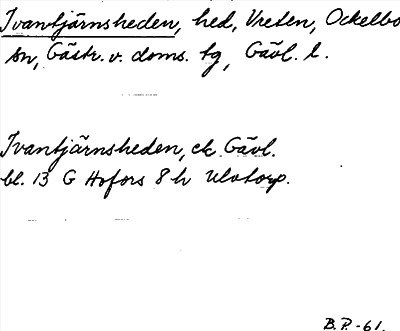 Ivantjärnsheden, hed, Vreten, Ockelbo
sn, Gästr. v. doms. tg, Gävl. l.
Ivantjärnsheden, ek Gävl.
bl. 13 G Hofors 8 h Ulvtorp.
B.P.-61.